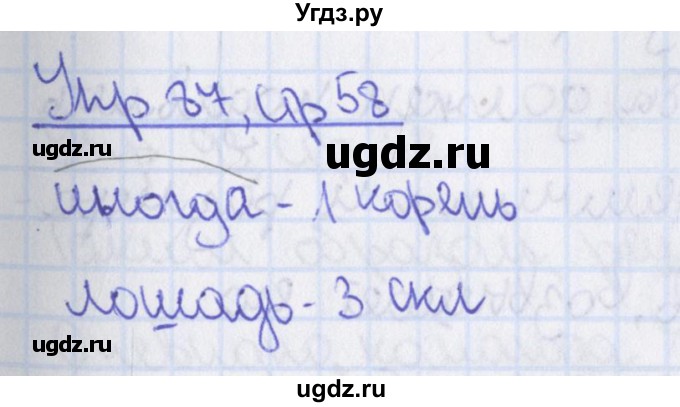 Угдз.ру
Упр 87, стр 58
ugdz.ru ugdz.ru
иногда - 1 корень
лошадь - 3 скл
ugdz.ru
ugdz.ru